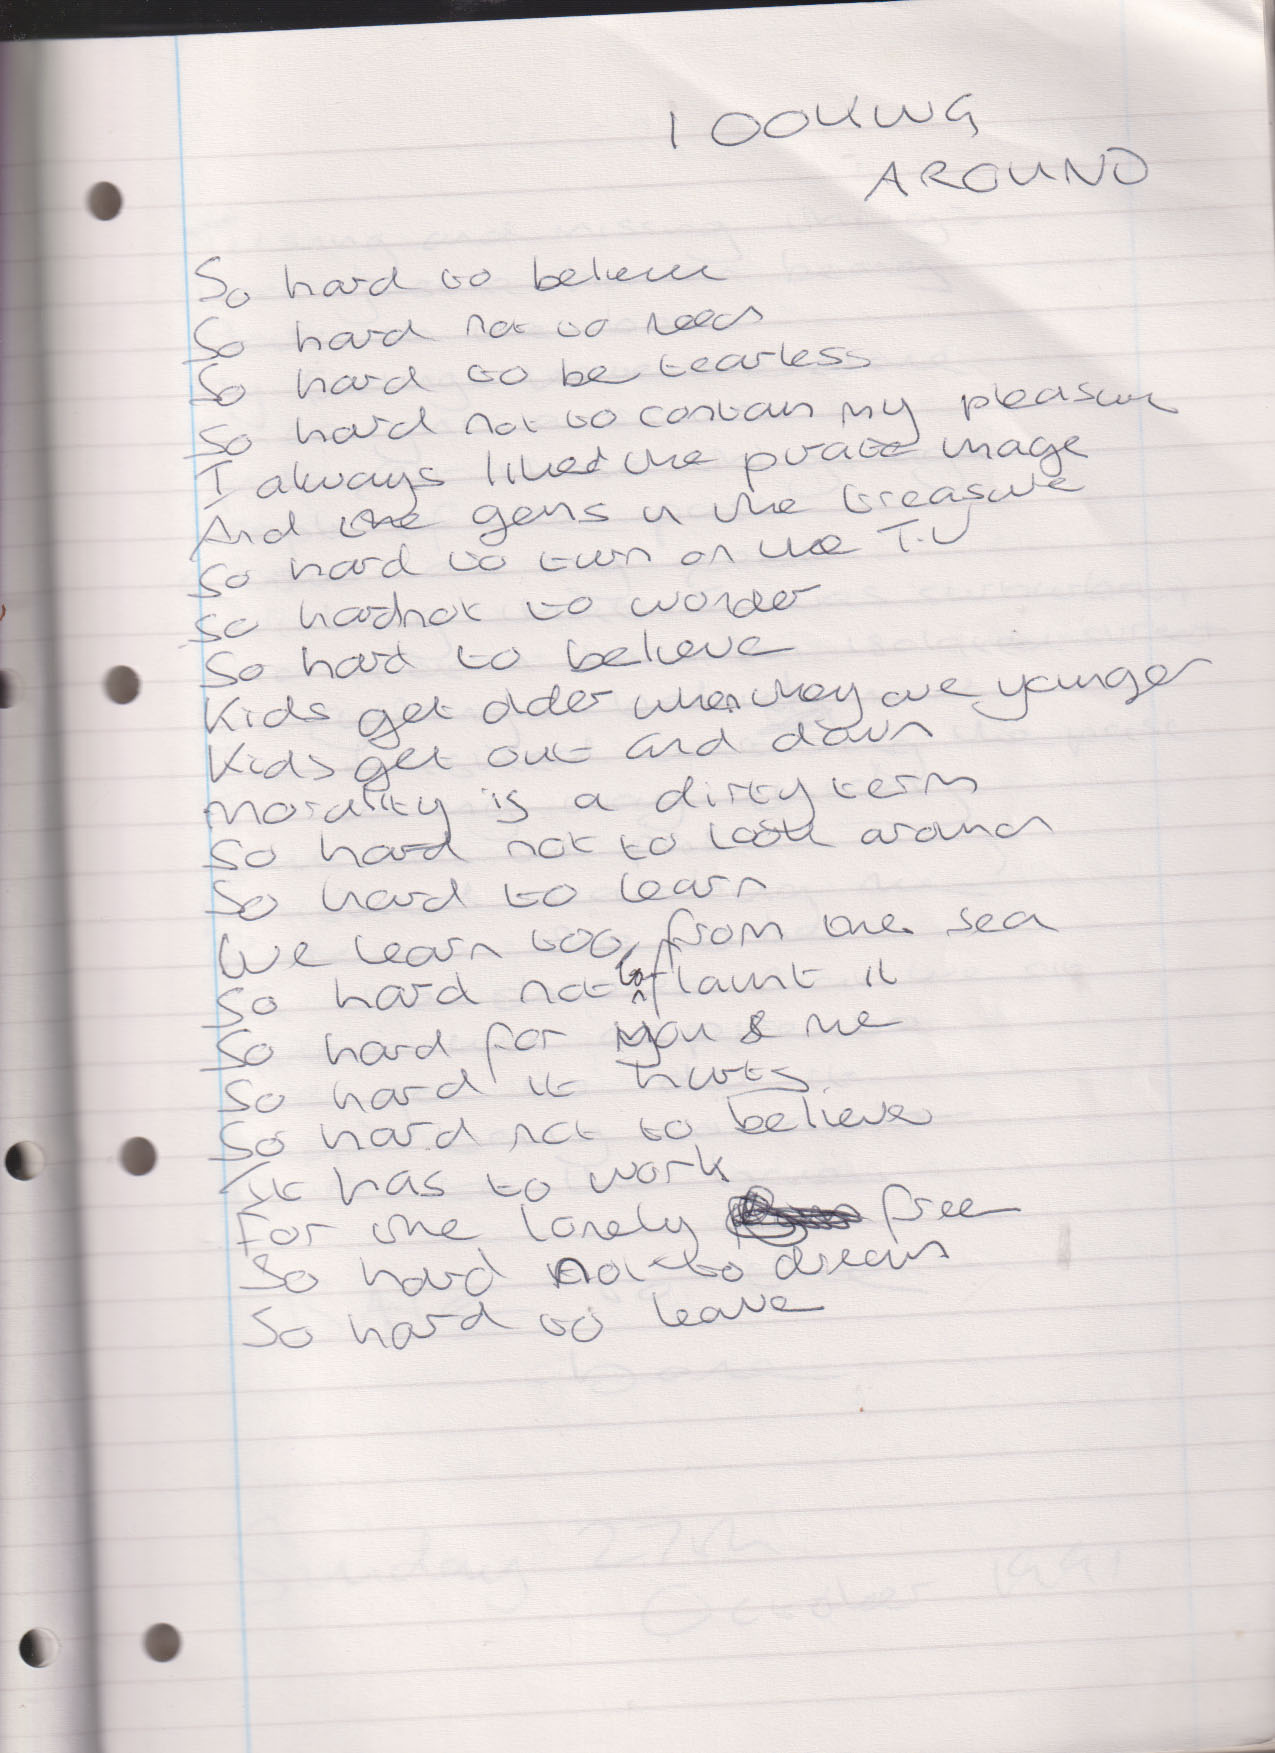 LOOKING
AROUND
So hard to believe
So hard not to need
So hard to be tearless
So hard not to contain my pleasure
I always liked the pirate image
And the gems in the treasure
So hard to turn on the T.V
So hard not to wonder
So hard to believe
Kids get older when they are younger
Kids get out and down
Morality is a dirty term
So hard not to look around
So hard to learn
We learn too, from the sea
So hard not to flaunt it
So hard for you & me
So hard it hurts
So hard not to believe
It has to work
For the lonely free
So hard not to dream
So hard to leave
Sunday 27th
October 1991